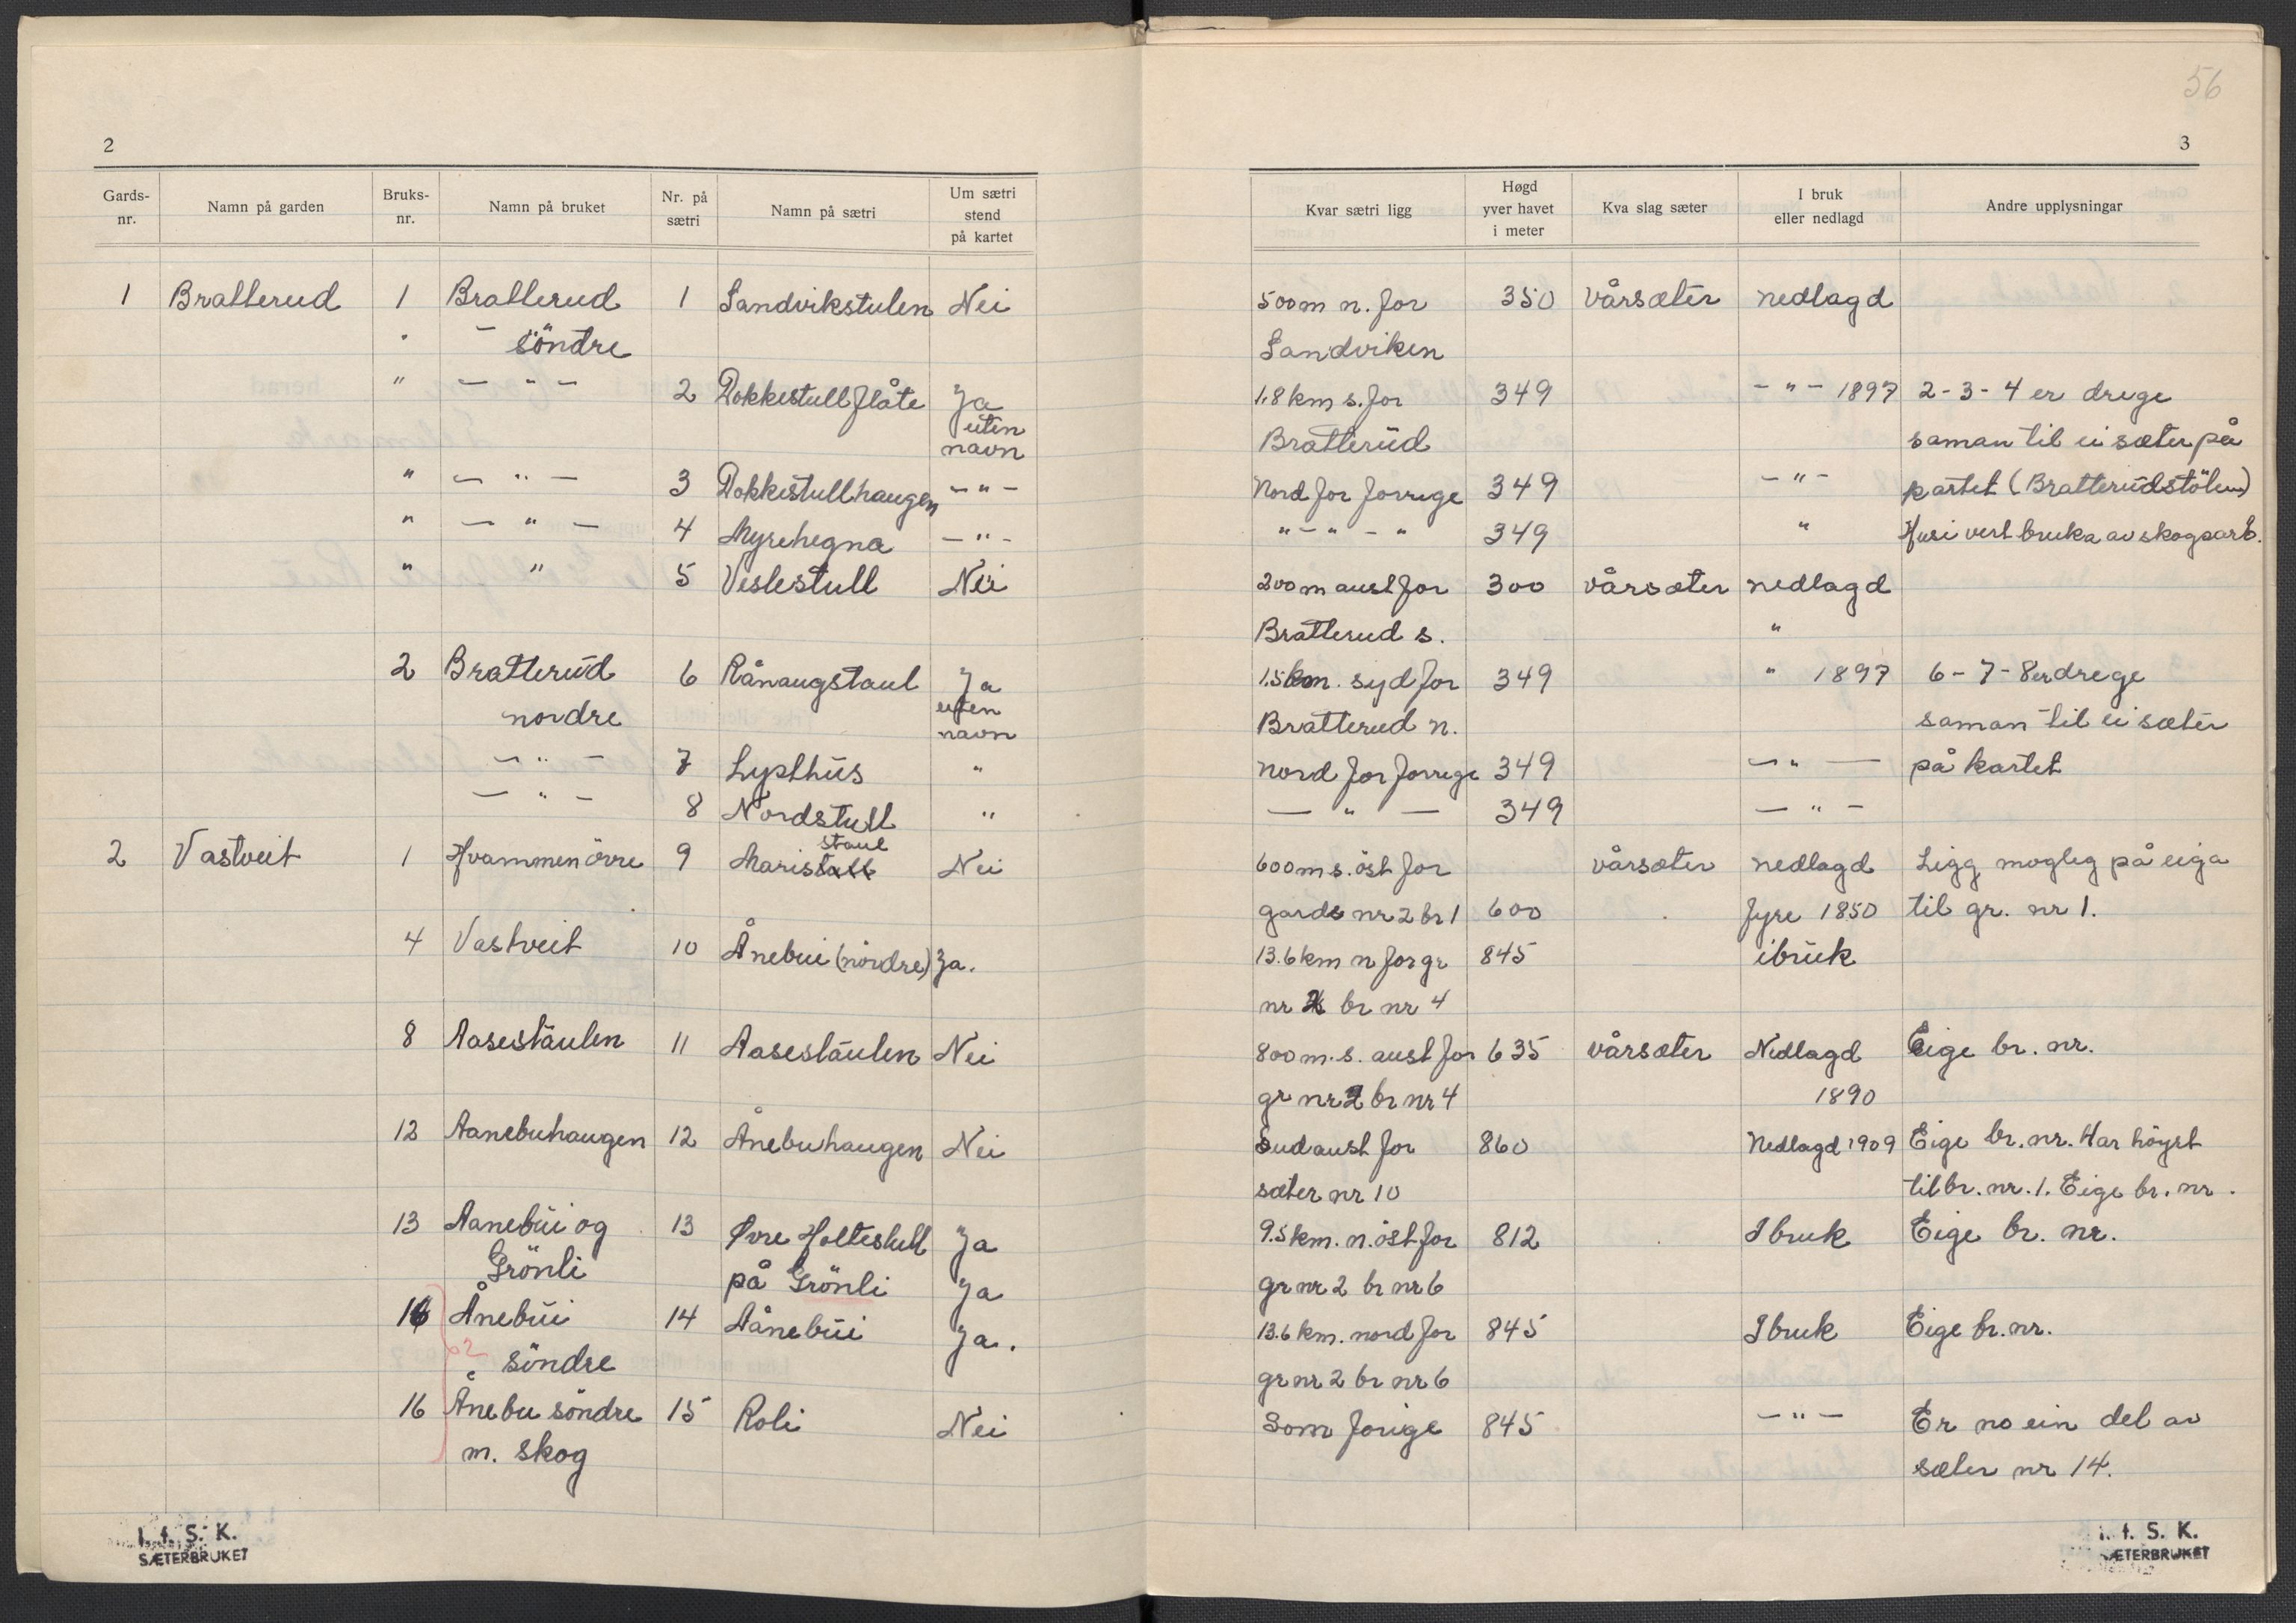 56
2
3
Gards-nr. Namn på garden Bruks-nr. Namn på bruket Nr. på sætri Namn på sætri Um sætri stend på kartet Kvar sætri ligg Høgd yver havet i meter Kva slag sæter I bruk eller nedlagd Andre upplysningar
1 Bratterud 1 Bratterud 1 Sandvikstulen Nei 500 m n. for 350 vårsæter nedlagd
" — söndre Sandviken
" — " — 2 Dokkestullflåte Ja 1.8 km s. for 349 — " — 1897 2-3-4 er drege
uten
navn Bratterud saman til ei sæter på
" — " — 3 Dokkestullhaugen — " — Nord for forrige 349 — " — kartet (Bratterudstölen)
" — " — 4 Myrehegna — " — " — " — " 349 " Husi vert bruka av skogsarb.
" " 5 Veslestull Nei 200 m aust for 300 vårsæter nedlagd
Bratterud s. "
2 Bratterud 6 Rånaugstaul Ja 1.5 km. syd for 349 " 1897 6-7-8 er drege
nordre uten
navn Bratterud n. saman til ei sæter
— " — 7 Lysthus " nord for forrige 349 — " — på kartet
— " — 8 Nordstull " — " — 349 — " —
staul
2 Vastveit 1 Hvammen övre 9 Maristull Nei 600 m s. öst for vårsæter nedlagd Ligg mogleg på eiga
gards nr 2 br 1 600 fyre 1850 til gr. nr 1.
4 Vastveit 10 Ånebui (nördre) Ja. 13.6 km n for gr 845 ibruk
nr 2 br nr 4
8 Aasestäulen 11 Aasestäulen Nei 800 m. s. aust for 635 vårsæter Nedlagd Eige br. nr.
gr nr 2 br nr 4 1890
12 Aanebuhaugen 12 Ånebuhaugen Nei Sudaust for 860 Nedlagd 1909 Eige br. nr. Har höyrt
sæter nr 10 til br. nr. 1. Eige br. nr.
13 Aanebui og 13 Øvre Holtestull Ja 9.5 km. n. öst for 812 I bruk Eige br. nr.
Grönli på Grönli Ja gr nr 2 br nr 6
16 Ånebui 14 Aånebui Ja. 13.6 km. nord for 845 I bruk Eige br. nr.
? söndre gr nr 2 br nr 6
16 Ånebu söndre 15 Roli Nei Som forige 845 — " — Er no ein del av
m. skog sæter nr 14.
I. f. S. K.
SÆTERBRUKET
I. f. S. K.
SÆTERBRUKET